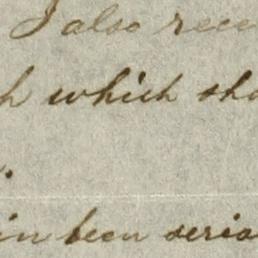 I also rece
h which sho
.
in been serio